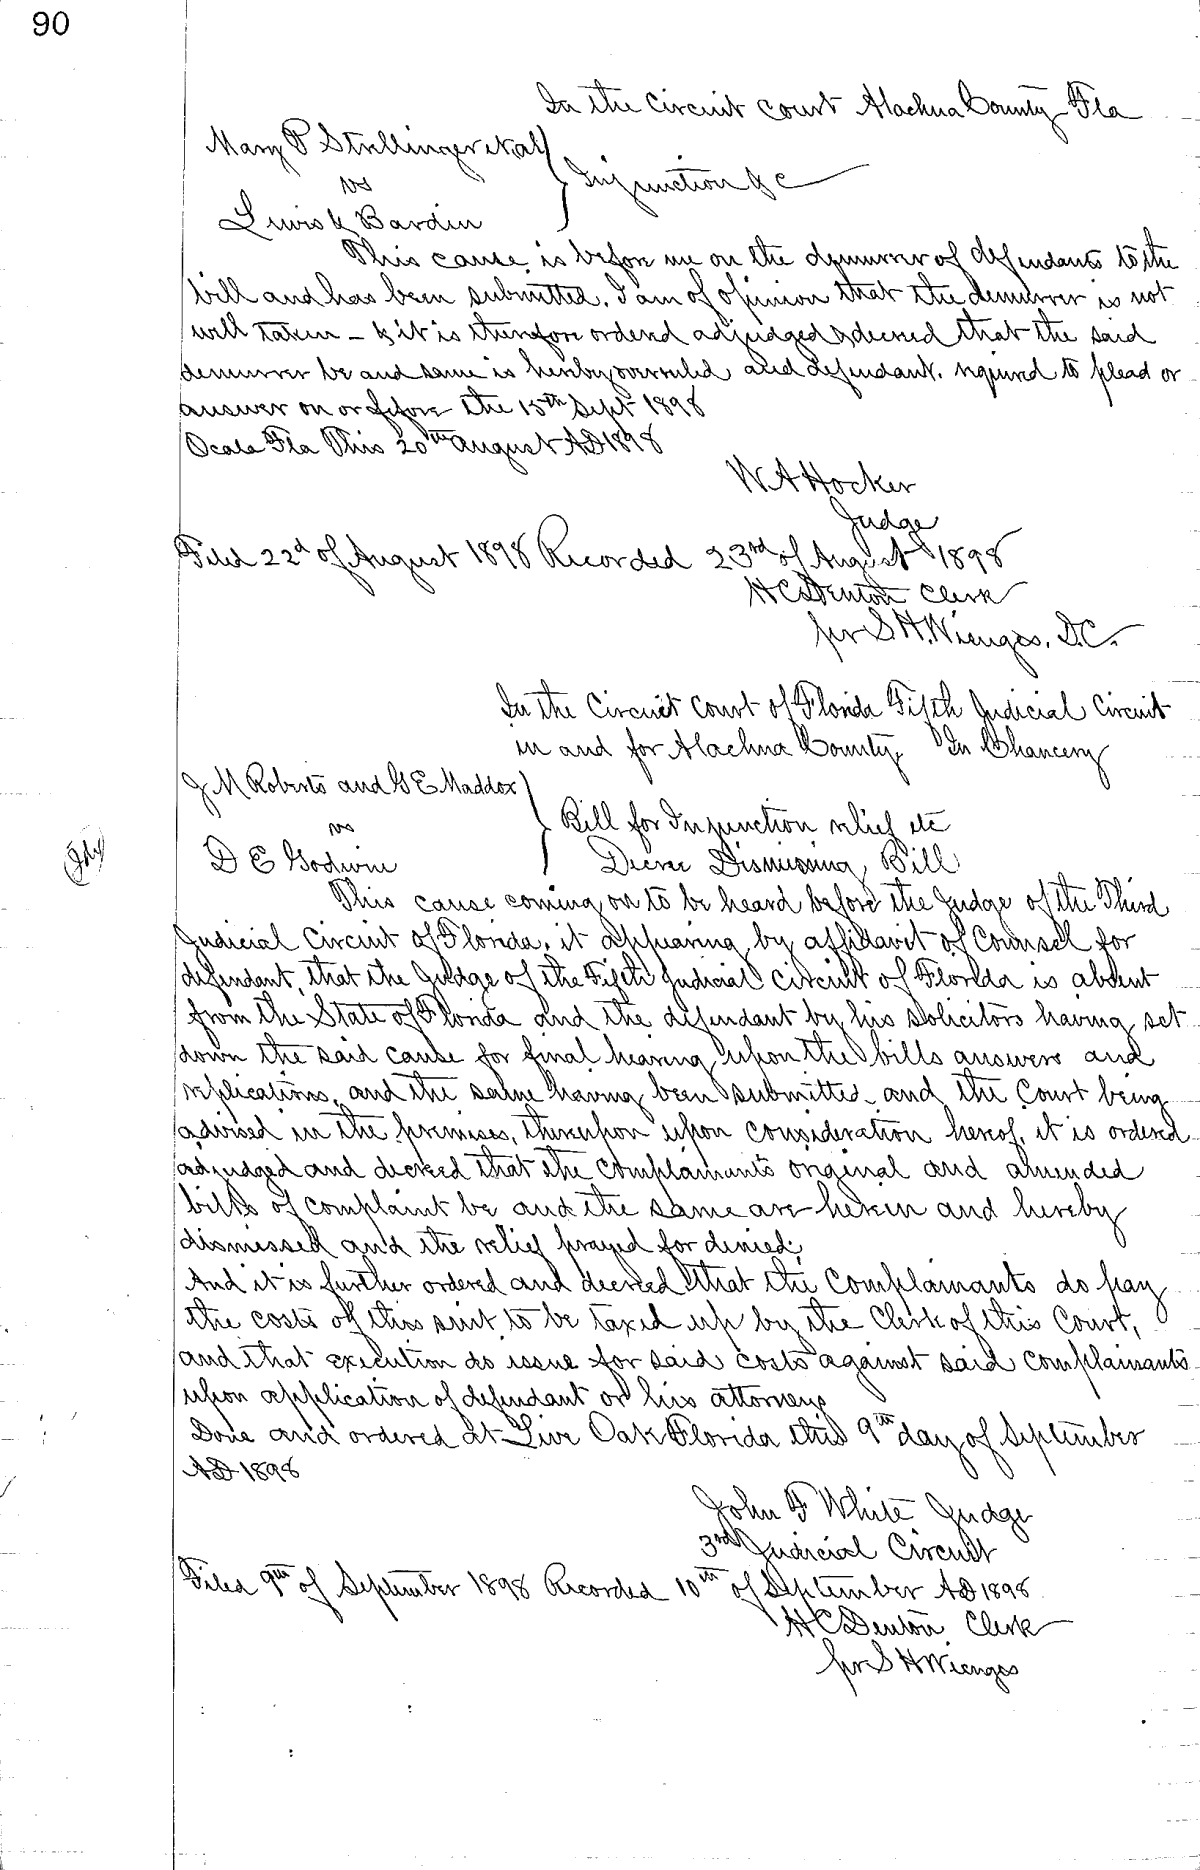 90
In the Circuit court Alachua County Fla
Mary P Strllinger et al
vs
Injunction &c
Lewis & Bardin
This cause is before me on the demurrer of defendants to the
bill and has been submitted. I am of opinion that the demurrer is not
well taken - & it is therefore ordered adjudged & decreed that the said
demurrer be and same is hereby overruled and defendant. required to plead or
answer on or before the 15th Sept 1898
Ocala Fla This 20th August AD 1898
W A Hocker
Judge
Filed 22d of August 1898 Recorded 23rd of August 1898
H C Denton Clerk
per S. H. Wienges, D.C.
In the Circuit Court of Florida Fifth Judicial Circuit
in and for Alachua County, In Chancery
J M Roberts and G E Maddox
vs
Bill for Injunction relief etc
D E Godwin
Decree Dismissing Bill
This cause coming on to be heard before the Judge of the Third
Judicial Circuit of Florida, it appearing by affidavit of Counsel for
defendant, that the Judge of the Fifth Judicial Circuit of Florida is absent
from the State of Florida and the defendant by his solicitors having set
down the said cause for final hearing upon the bills answers and
replications, and the same having been submitted and the Court being
advised in the premises, thereupon upon consideration hereof, it is ordered
adjudged and decreed that the complainants original and amended
bills of complaint be and the same are herein and hereby
dismissed and the relief prayed for denied;
And it is further ordered and decreed that the Complainants do pay
the costs of this suit to be taxed up by the Clerk of this Court,
and that execution do issue for said costs against said complainants
upon application of defendant or his attorneys
Done and ordered at Live Oak Florida this 9th day of September
AD 1898
John F White Judge
3rd Judicial Circuit
Filed 9th of September 1898 Recorded 10th of September AD 1898
H C Denton Clerk
per S H Wienges